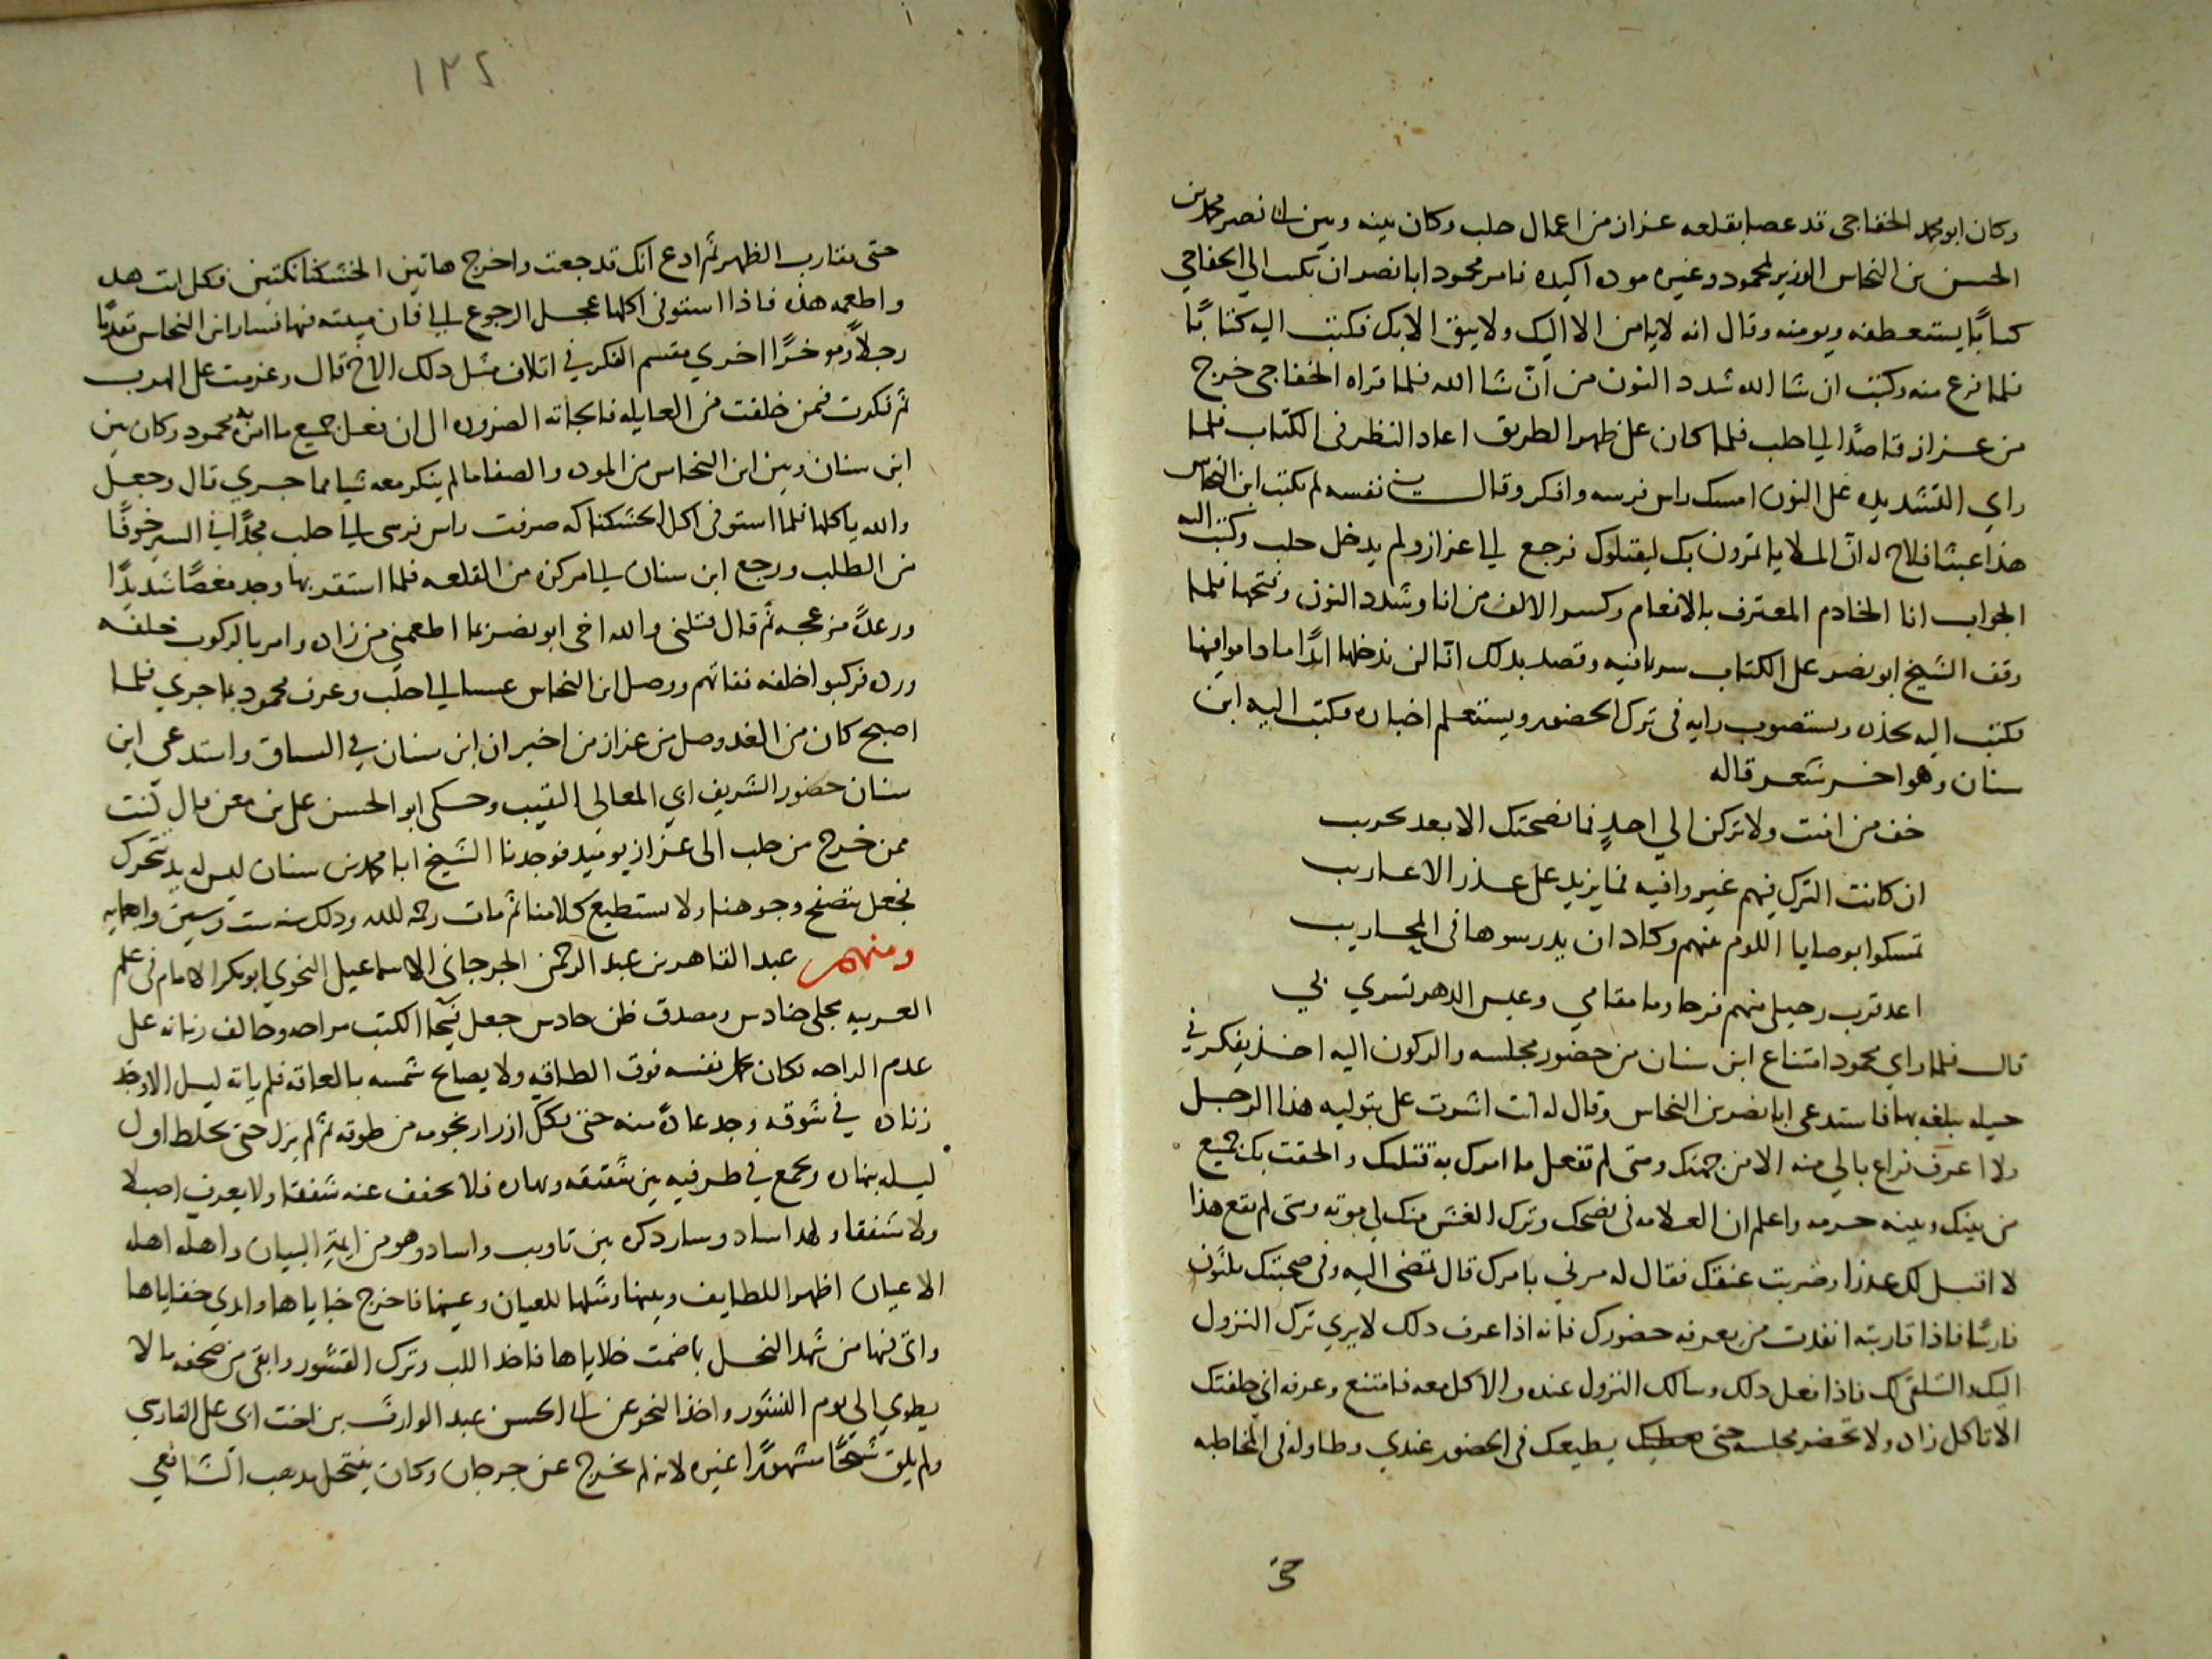 وكان ابو محمد الخفاجي قد عصا بقلعه عزاز من اعمال حلب وكان بينه وبين ابي نصر محمد بن
الحسن بن النحاس الوزير لمحمود وغيره موده اكيده فامر محمود ابا نصر ان يكتب الي الخفاجي
كتابًا يستعطفه ويومنه وقال انه لا يامن الا اليك ولا يثق الا بك فكتب اليه كتابًا
فلما فرغ منه وكتب ان شا الله شدد النون من انّ شا الله فلما قراه الخفاجي خرج
من عزاز قاصدًا الي حلب فلما كان على ظهر الطريق اعاد النظر في الكتاب فلما
راي التشديده على النون امسك راس فرسه وافكر وقال في نفسه لم يكتب ابن النحاس
هذا عبثا فلاح له انّ الملا ياتمرون بك ليقتلوك فرجع الي عزاز ولم يدخل حلب وكتب اليه
الجواب انا الخادم المعترف بالانعام وكسر الالف من انا وشدد النون وفتحها فلما
وقف الشيخ ابو نصر على الكتاب سر بما فيه وقصد بذلك انّا لن ندخلها ابدًا ما داموا فيها
فكتب اليه يحذره ويستصوب رايه في ترك الحضور ويستعلم اخباره فكتب اليه ابن
سنان وهو اخر شعر قاله
خف من امنت ولا تركن الي احدٍ فما نصحتك الا بعد تجريب
ان كانت الترك فيهم غير وافيه فما يزيد على غدر الاعاريب
تمسكوا بوصايا اللوم بينهم وكاد ان يدرسوها في المحاريب
اعد قرب رحيلي منهم فرحا وما مقامي وعيس الدهر تسري بي
قال فلما راي محمود امتناع ابن سنان من حضور مجلسه والركون اليه اخذ يفكر في
حيله يبلغه بها فاستدعى ابا نصر بن النحاس وقال له انت اشرت على بتوليه هذا الرجل
ولا اعرف فراغ بالي منه الا من جهتك ومتى لم تفعل ما امرك به قتلتك والحقت بك جميع
من بينك وبينه حرمه واعلم ان العلامه في نصحك وترك الغش منك لي موته ومتى لم يقع هذا
لا اقبل لك عذرا وضربت عنقك فقال له مرني بامرك قال تمضي اليه وفي صحبتك ثلثون
فارسًا فاذا قاربته انفذت من يعرفه حضورك فانه اذا عرف ذلك لا يري ترك النزول
اليك والتلقي لك فاذا فعل ذلك وسالك النزول عنده والاكل معه فامتنع وعرفه اني حلفتك
الا تاكل زاده ولا تحضر مجلسه حتى يطيعك في الحضور عندي وطاوله في المخاطبه
حتى
١٢٢
حتى يقارب الظهر ثم ادع انك قد جعت واخرج هاتين الخشكنانكتين فكل انت هذه
واطعمه هذه فاذا استوفى اكلها عجل الرجوع الي فان ميتته فيها فسار ابن النحاس مقدمًا
رجلاً وموخرًا اخري مقسم الفكر في اتلاف مثل ذلك الاخ قال وعزمت على الهرب
ثم فكرت فيمن خلفت من العايله فالجاته الضروره الي ان فعل جميع ما امره به محمود وكان بين
ابن سنان وبين ابن النحاس من الموده والصفا ما لم ينكر معه شيا مما جري قال وجعل
والله ياكلها فلما استوفى اكل الخشكنانكه صرفت راس فرسي الي حلب مجدًا في السير خوفًا
من الطلب ورجع ابن سنان الي مركزه من القلعه فلما استقر بها وجد مغصًا شديدًا
ورعدً مزعجه ثم قال قتلني والله اخي ابو نصر بما اطعمني من زاده وامر بالركوب خلفه
ورده فركبوا خلفه ففاتهم ووصل ابن النحاس الي حلب وعرف محمود بما جري فلما
اصبح كان من الغد وصل من عزاز من اخبر ان ابن سنان في السياق واستدعى ابن
سنان حضور الشريف ابي المعالي النقيب وحكى ابو الحسن على بن معن قال كنت
ممن خرج من حلب الى عزاز يوميذ فوجدنا الشيخ ابا محمد بن سنان ليس له يد تتحرك
فجعل يتصفح وجوهنا ولا يستطيع كلامنا ثم مات رحمه الله وذلك سنه ست وستين واربعمايه
ومنهم عبد القاهر بن عبد الرحمن الجرجاني الاسماعيل النحوي ابو بكر الامام في علم
العربيه مجلي حنادس ومصدق ظن حادس جعل الكتب مراحه وحالف زمانه على
عدم الراحه فكان يحمل نفسه فوق الطاقه ولا يصابح شمسه بالعاته فلم ياته ليل الا وقد
زناده في شوقه وجد عادة منه حتى يفكك ازرار نجومه من طوقه ثم لم يزل حتى يخلط اول
ليله بنهاره ويجمع في طرفيه بين شفقه وبهاره فلا يخفف عنه شفقا ولا يعرف اصيلا
ولا شفقا وله اساد وسار ذكره بين تاويب واساد وهو من ايمة البيان واهله اهله
الاعيان اظهر اللطايف وبينها ومثلها للعيان وعينها فاخرج خباياها وابدي خفاياها
واتى فيها من شهد النحل بما ضمت خلاياها فاخذ اللب وترك القشور وابقى من صحفه ما لا
يطوي الى يوم النشور واخذ النحو عن ابي الحسن عبد الوارث بن اخت ابي على الفارسي
ولم يلق شيخًا مشهورًا غيره لانه لم يخرج عن جرجان وكان ينتحل مذهب الشافعي